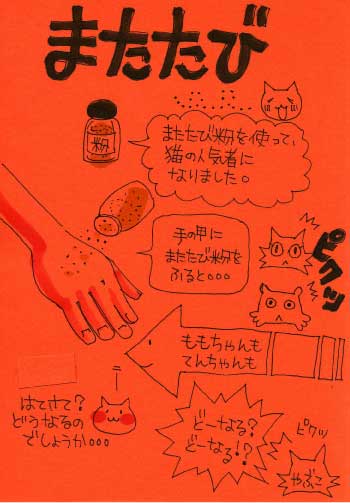 またたび
粉
またたび粉を使って、
猫の人気者に
なりました。
手の甲に
またたび粉を
ふると。。。
ピクッ
ももちゃんも
てんちゃんも
はてさて？
どうなるの
でしょうか。。。
どーなる？
どーなる！？
ピクッ
やぶこ